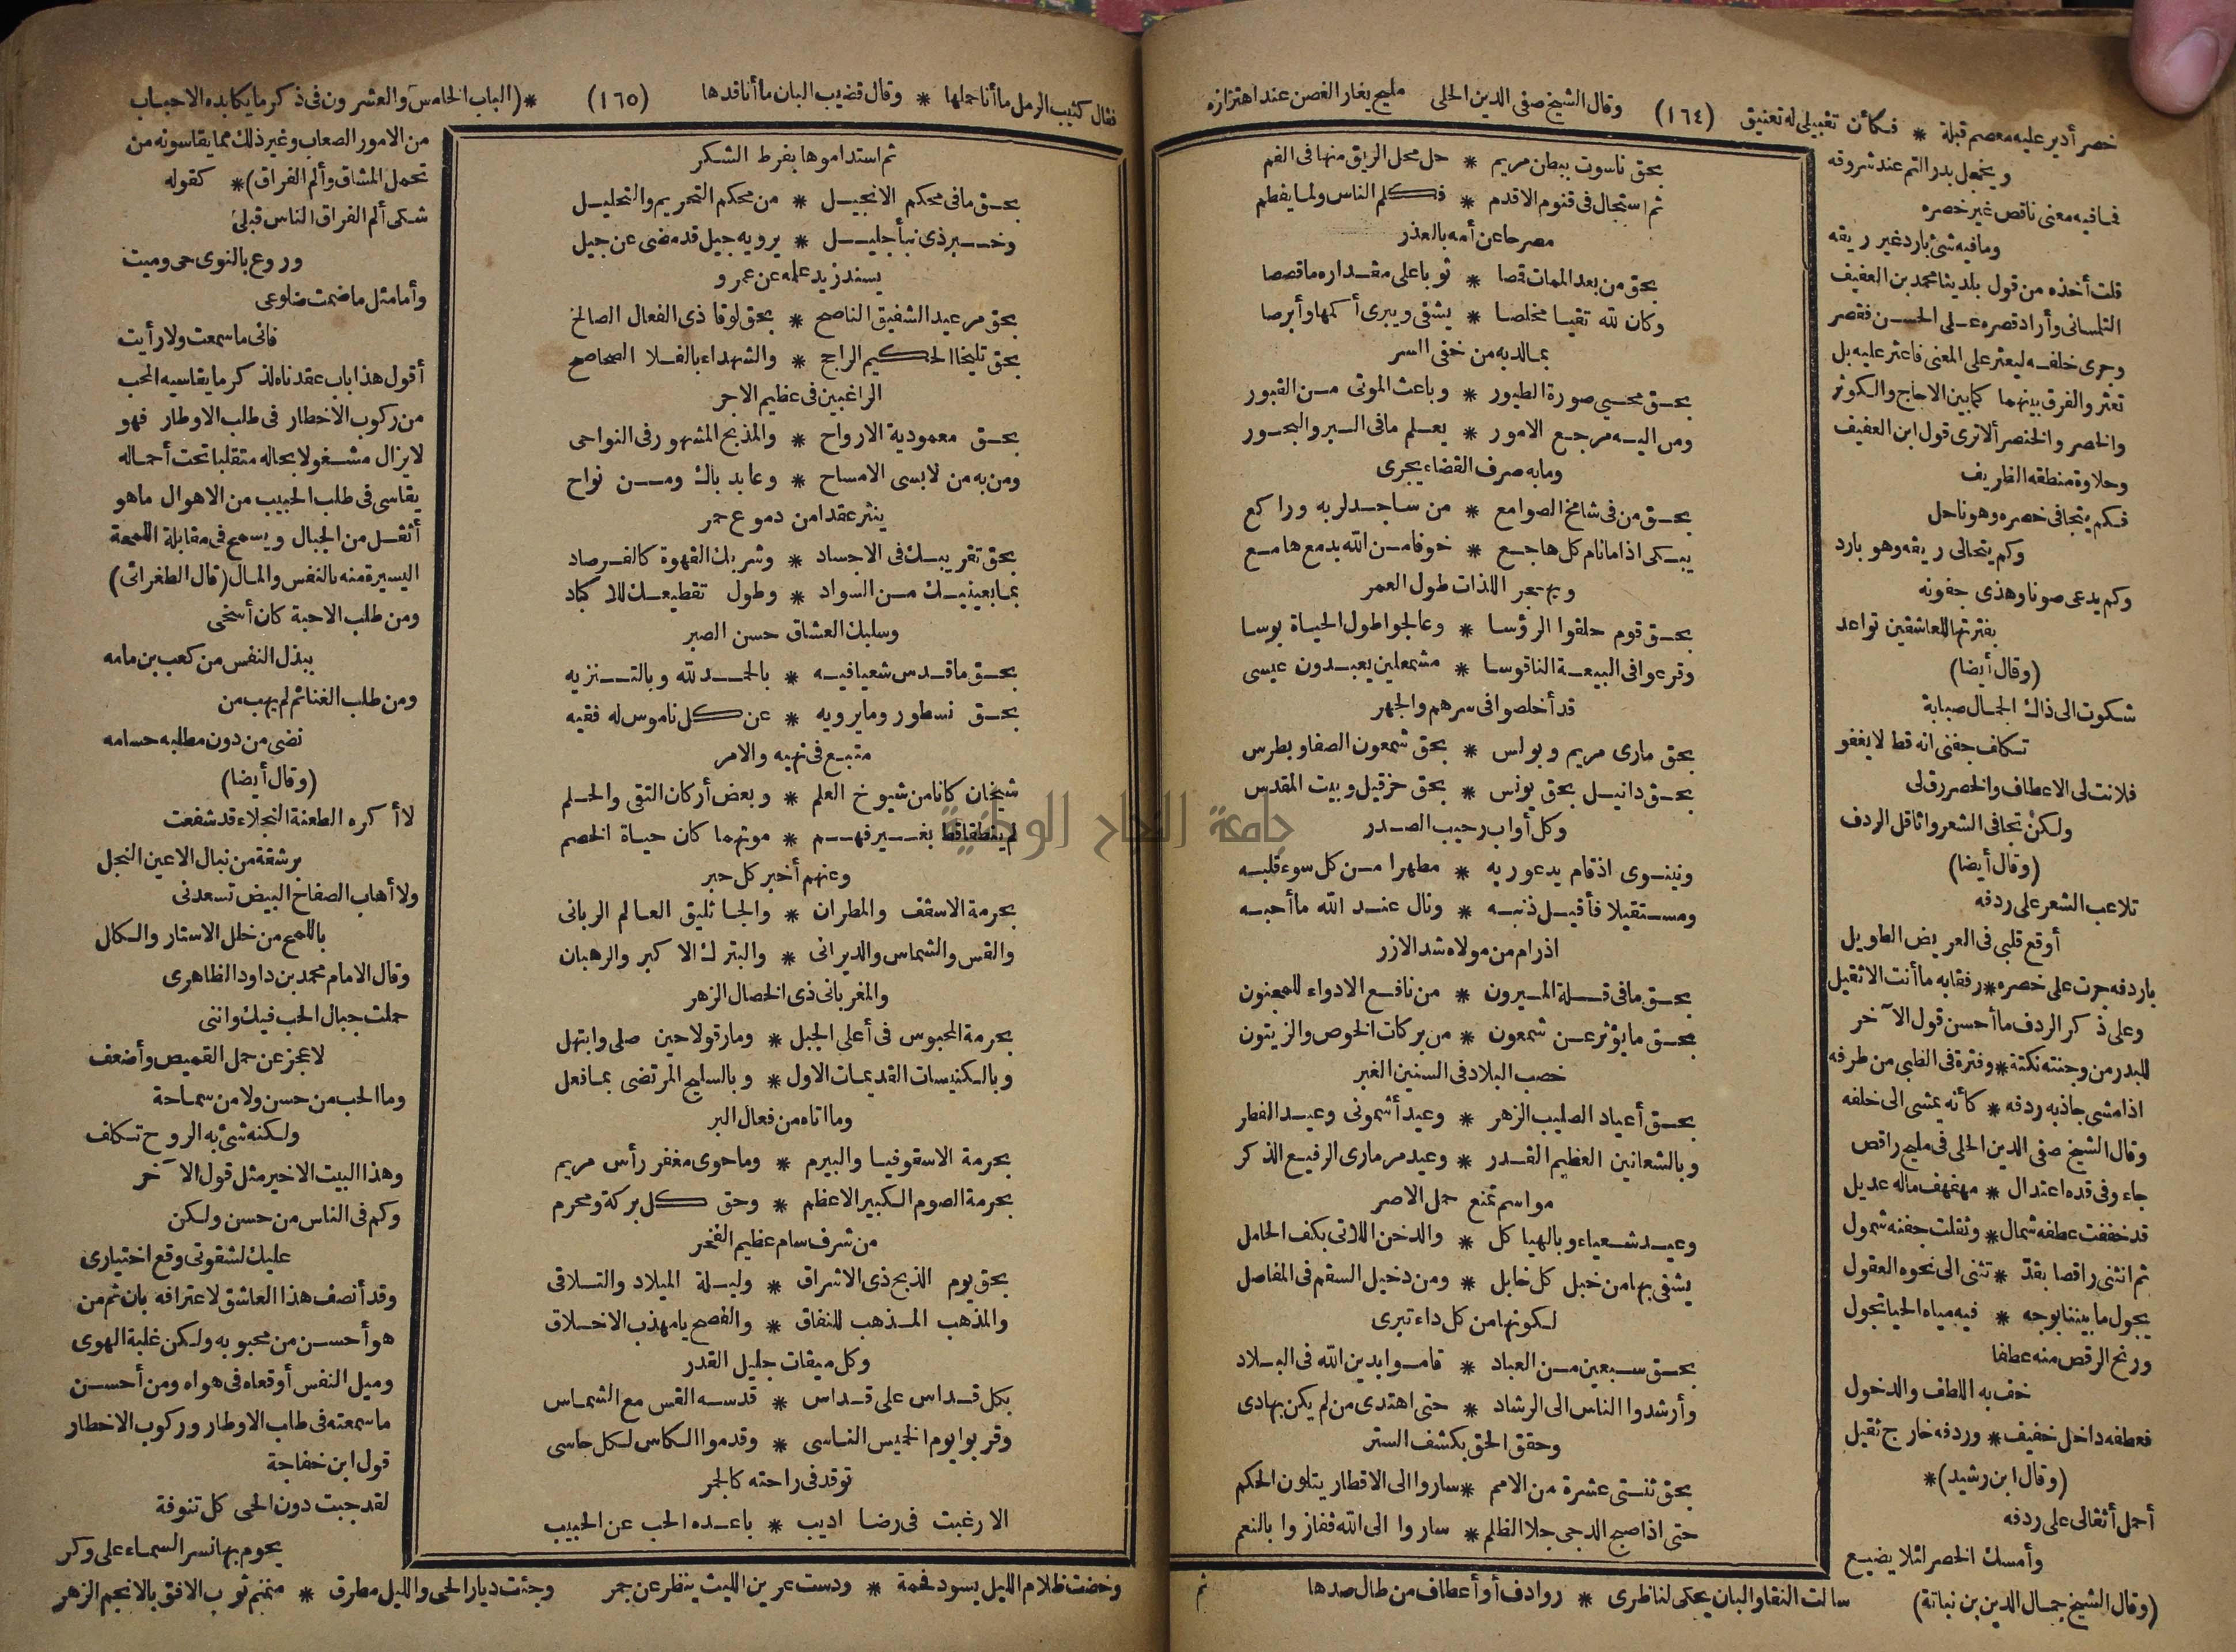 خصر أدير عليه معصم قبلة * فكأن تقبيلى له تعنيق (١٦٤) وقال الشيخ صفى الدين الحلى مليح يغار الغصن عند اهتزازه
ويخجل بدر التم عند شروقه
فما فيه معنى ناقص غير خصره
وما فيه شئ بارد غير ريقه
قلت أخذه من قول بلدينا محمد بن العفيف
التلمسانى وأراد قصره على الحسن فقصر
وجرى خلفه ليعثر على المعنى فاعثر عليه بل
تعثر والفرق بينهما كما بين الاجاج والكوثر
والخصر والخنصر ألا ترى قول ابن العفيف
وحلاوة منطقه الظريف
فكم يتجافى خصره وهو ناحل
وكم يتحالى ريقه وهو بارد
وكم يدعى صونا وهذى جفونه
بفترتها للعاشقين تواعد
(وقال أيضا)
شكوت الى ذاك الجمال صبابة
تكلف جفنى انه قط لا يغفو
فلانت لى الاعطاف والخصر رق لى
ولكن تجافى الشعر واثاقل الردف
(وقال أيضا)
تلاعب الشعر على ردفه
أوقع قلبى فى العريض الطويل
يا ردفه جرت على خصره * رفقا به ما أنت الا ثقيل
وعلى ذكر الردف ما أحسن قول الآخر
للبدر من وجنته نكتة * وفترة فى الظبى من طرفه
اذا مشى جاذبه ردفه * كأنه يمشى الى خلفه
وقال الشيخ صفى الدين الحلى فى مليح راقص
جاء وفى قده اعتدال * مهفهف ماله عديل
قد خففت عطفه شمال * وثقلت جفنه شمول
ثم انثنى راقصا بقد * تثنى الى نحوه العقول
يجول ما بيننا بوجه * فيه مياه الحيا تجول
ورنح الرقص منه عطفا
خف به اللطف والدخول
فعطفه داخل خفيف * وردفه خارج ثقيل
(وقال ابن رشيد) *
أحمل أثقالى على ردفه
وأمسك الخصر لئلا يضيع
(وقال الشيخ جمال الدين بن نباتة) سالت النقا والبان يحكى لناظرى * روادف أو أعطاف من طال صدها
ثم
بحق ناسوت ببطن مريم * حل محل الريق منها فى الفم
ثم استحال فى قنوم الاقدم * فكلم الناس ولما يفطم
مصرحا عن أمه بالعذر
بحق من بعد الممات قمصا * ثوبا على مقداره ما قصصا
وكان لله تقيا مخلصا * يشفى ويبرى أكمها وأبرصا
بما لديه من خفى السر
بحق محيى صورة الطيور * وباعث الموتى من القبور
ومن اليه مرجع الامور * يعلم ما فى البر والبحور
وما به صرف القضاء يجرى
بحق من فى شامخ الصوامع * من ساجد لربه وراكع
يبكى اذا ما نام كل هاجع * خوفا من الله بدمع هامع
ويهجر اللذات طول العمر
بحق قوم حلقوا الرؤسا * وعالجوا طول الحياة بوسا
وقرعوا فى البيعة الناقوسا * مشمعلين يعبدون عيسى
قد أخلصوا فى سرهم والجهر
بحق مارى مريم وبولس * بحق شمعون الصفا وبطرس
بحق دانيل بحق يونس * بحق حزقيل وبيت المقدس
وكل أواب رحيب الصدر
ونينوى اذ قام يدعو ربه * مطهرا من كل سوء قلبه
ومستقيلا فأقيل ذنبه * ونال عند الله ما أحبه
اذ رام من مولاه شد الازر
بحق ما فى قلة الميرون * من نافع الادواء للمجنون
بحق ما يؤثر عن شمعون * من بركات الخوص والزيتون
خصب البلاد فى السنين الغبر
بحق أعياد الصليب الزهر * وعيد أشمونى وعيد الفطر
وبالشعانين العظيم القدر * وعيد مر مارى الرفيع الذكر
مواسم تمنع حمل الاصر
وعيد شعياء وبالهياكل * والدخن اللاتى بكف الحامل
يشفى بها من خبل كل خابل * ومن دخيل السقم فى المفاصل
لكونها من كل داء تبرى
بحق سبعين من العباد * قاموا بدين الله فى البلاد
وأرشدوا الناس الى الرشاد * حتى اهتدى من لم يكن بهادى
وحقق الحق بكشف الستر
بحق ثنتى عشرة من الامم * ساروا الى الاقطار يتلون الحكم
حتى اذا صبح الدجى جلا الظلم * ساروا الى الله ففازوا بالنعم
فقال كثيب الرمل ما أنا حملها * وقال قضيب البان ما أنا قدها (١٦٥) *(الباب الخامس والعشرون فى ذكر ما يكابده الاحباب
ثم استداموها بفرط الشكر
بحق ما فى محكم الانجيل * من محكم التحريم والتحليل
وخبر ذى نبأ جليل * يرويه جيل قد مضى عن جيل
يسند زيد علمه عن عمرو
بحق مر عيد الشفيق الناصح * بحق لوقا ذى الفعال الصالح
بحق تليخا الحكيم الراجح * والشهداء بالفلا الصحاصح
الراغبين فى عظيم الاجر
بحق معمودية الارواح * والمذبح المشهور فى النواحى
ومن به من لابسى الامساح * وعابد باك ومن نواح
ينثر عقدا من دموع حمر
بحق تقريبك فى الاجساد * وشربك القهوة كالفرصاد
بما بعينيك من السواد * وطول تقطيعك للاكباد
وسلبك العشاق حسن الصبر
بحق ما قدس شعيا فيه * بالحمد لله وبالتنزيه
بحق نسطور وما يرويه * عن كل ناموس له فقيه
متبع فى نهيه والامر
شيخان كانا من شيوخ العلم * وبعض أركان التقى والحلم
لم ينطقا قط بغير فهم * موتهما كان حياة الخصم
وعنهم أخبر كل حبر
بحرمة الاسقف والمطران * والجاثليق العالم الربانى
والقس والشماس والديرانى * والبترك الاكبر والرهبان
والمغربانى ذى الخصال الزهر
بحرمة المحبوس فى أعلى الجبل * ومار قولا حين صلى وابتهل
وبالكنيسات القديمات الاول * وبالسليح المرتضى بما فعل
وما اتاه من فعال البر
بحرمة الاسقوفيا والبيرم * وما حوى مغفر رأس مريم
بحرمة الصوم الكبير الاعظم * وحق كل بركة ومحرم
من شرف سام عظيم الفخر
بحق يوم الذبح ذى الاشراق * وليلة الميلاد والتلاقى
والمذهب المذهب للنفاق * والفصح يا مهذب الاخلاق
وكل ميقات جليل القدر
بكل قداس على قداس * قدسه القس مع الشماس
وقربوا يوم الخميس الناسى * وقدموا الكاس لكل حاسى
توقد فى راحته كالجمر
الا رغبت فى رضا اديب * باعده الحب عن الحبيب
من الامور الصعاب وغير ذلك مما يقاسونه من
تحمل المشاق وألم الفراق) * كقوله
شكى ألم الفراق الناس قبلى
وروع بالنوى حى وميت
وأما مثل ما ضمت ضلوعى
فانى ما سمعت ولا رأيت
أقول هذا باب عقدناه لذكر ما يقاسيه المحب
من ركوب الاخطار فى طلب الاوطار فهو
لا يزال مشغولا بحاله متقلبا تحت أحماله
يقاسى فى طلب الحبيب من الاهوال ما هو
أثقل من الجبال ويسمح فى مقابلة اللمحة
اليسيرة منه بالنفس والمال (قال الطغرائى)
ومن طلب الاحبة كان أسخى
ببذل النفس من كعب بن مامه
ومن طلب الغنائم لم يهب من
نضى من دون مطلبه حسامه
(وقال أيضا)
لا أكره الطعنة النجلاء قد شفعت
برشقة من نبال الاعين النجل
ولا أهاب الصفاح البيض تسعدنى
باللمح من خلل الاستار والكلل
وقال الامام محمد بن داود الظاهرى
حملت جبال الحب فيك واننى
لاعجز عن حمل القميص وأضعف
وما الحب من حسن ولا من سماحة
ولكنه شئ به الروح تكلف
وهذا البيت الاخير مثل قول الآخر
وكم فى الناس من حسن ولكن
عليك لشقوتى وقع اختيارى
وقد أنصف هذا العاشق لاعترافه بان ثم من
هو أحسن من محبوبه ولكن غلبة الهوى
وميل النفس أوقعاه فى هواه ومن أحسن
ما سمعته فى طلب الاوطار وركوب الاخطار
قول ابن خفاجة
لقد جبت دون الحى كل تنوفة
يحوم بها نسر السماء على وكر
وخضت ظلام الليل يسود فحمة * ودست عرين الليث ينظر عن جمر وجئت ديار الحى والليل مطرق * منمنم ثوب الافق بالانجم الزهر
جامعة النجاح الوطنية